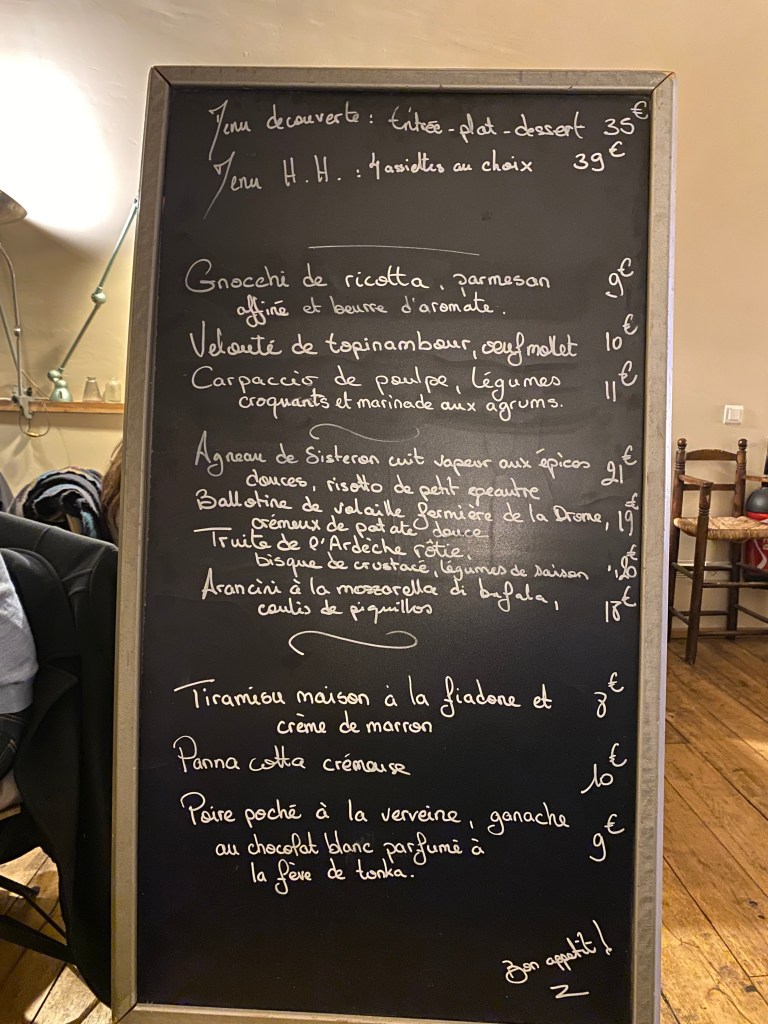 Menu decouverte : Entrée - plat - dessert 35€
Menu H.H. : 4 assiettes au choix 39€
Gnocchi de ricotta, parmesan 9€
affiné et beurre d'aromate.
Velouté de topinambour, oeuf mollet 10€
Carpaccio de poulpe, légumes 11€
croquants et marinade aux agrums.
Agneau de Sisteron cuit vapeur aux épices 21€
douces, risotto de petit epeautre
Ballotine de volaille fermière de la Drome, 19€
crémeux de patate douce
Truite de l'Ardèche rôtie,
bisque de crustacé, légumes de saison
Arancini à la mozzarella di bufala, 18€
coulis de piquillos
Tiramisu maison à la fiadone et 8€
crème de marron
Panna cotta crémeuse 10€
Poire poché à la verveine, ganache 9€
au chocolat blanc parfumé à
la fève de tonka.
Bon appetit !